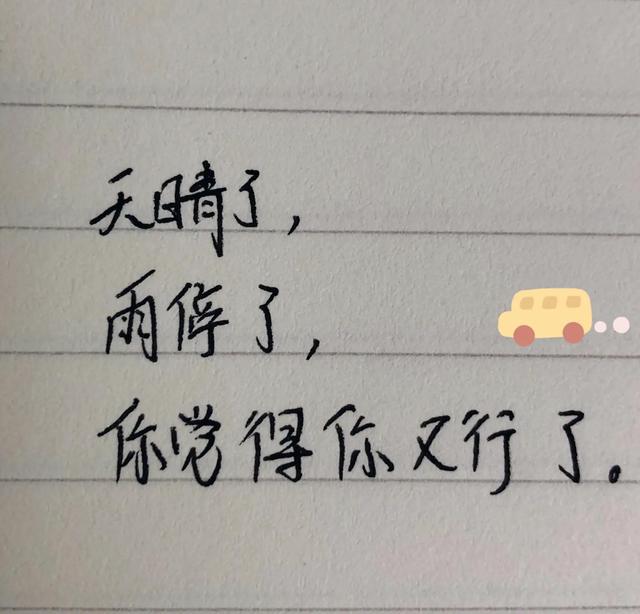 天晴了，
雨停了，
你觉得你又行了。